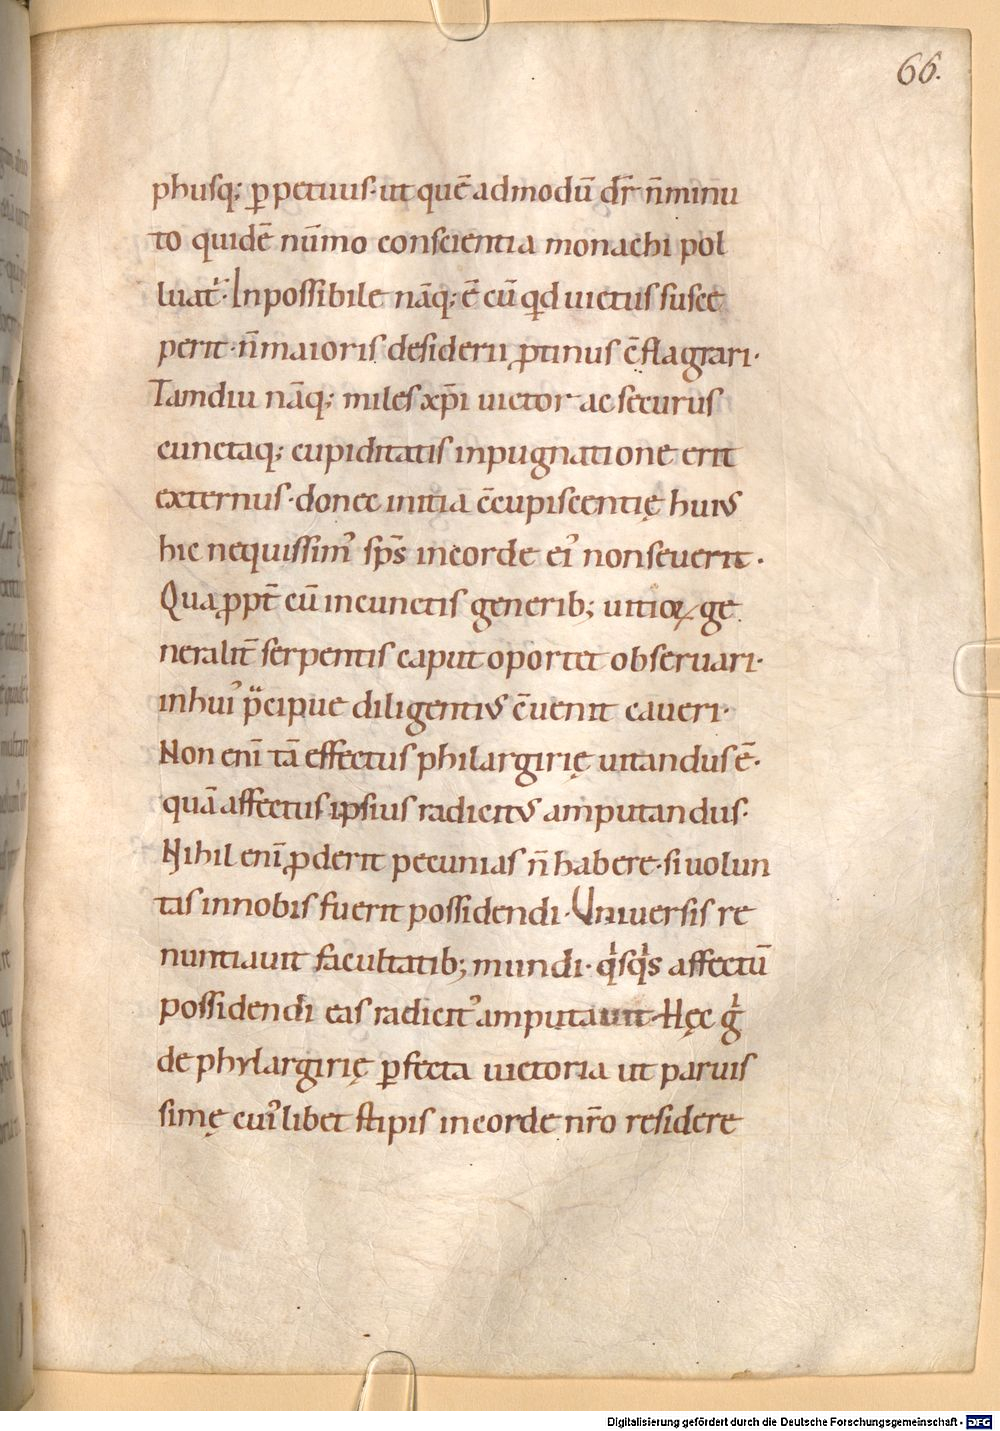 66.
phusq; p̄petuus· ut quē admodū dr̄ n̄ minu
to quidē nūmo conscientia monachi pol
luat᷑· Inpossibile nāq; ē cū qd uictus susce
perit· n̄ maioris desiderii ꝓtinus c̄flagrari·
Tamdiu nāq; miles xp̄i uictor ac securus
cunctaq; cupiditatis inpugnatione erit
externus· donec initiā c̄cupiscentię huiꝰ
hic nequissimꝰ sp̄s incorde eiꝰ non seuerit·
Quaꝓpt̄ cū incunctis generib; uitioꝝ ge
neralit̄ serpentis caput oportet obseruari·
inhuiꝰ p̈cipue diligentiꝰ c̄uenit caueri·
Non enī tā effectus philargirię uitandus ē·
quā affectus ipsius radicitꝰ amputandus·
Nihil enī ꝓderit pecunias n̄ habere· si uolun
tas innobis fuerit possidendi· Uniuersis re
nuntiauit facultatib; mundi· qͥsqͥs affectū
possidendi eas radicitꝰ amputauit· Hęc gͥ
de phylargirię ꝑfecta uictoria ut paruis
simę cuiꝰlibet stipis incorde nr̄o residere
Digitalisierung gefördert durch die Deutsche Forschungsgemeinschaft - DFG